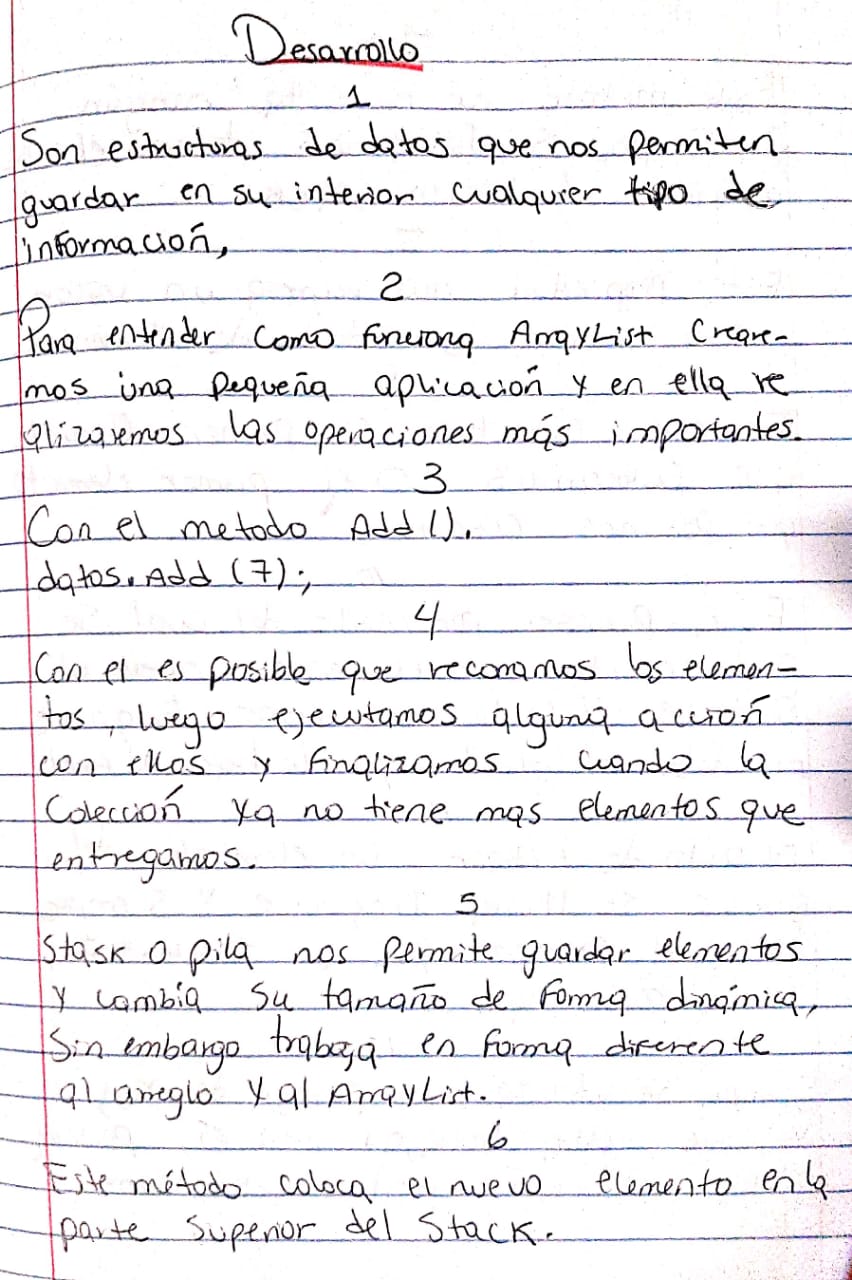 Desarrollo
1
Son estructuras de datos que nos permiten
guardar en su interior cualquier tipo de
información,
2
Para entender como funciona ArrayList Creare-
mos una pequeña aplicación y en ella re
alizaremos las operaciones más importantes.
3
Con el metodo Add ().
datos.Add (7);
4
Con el es posible que recorramos los elemen-
tos, luego ejecutamos alguna acción
con ellos y finalizamos cuando la
Colección ya no tiene mas elementos que
entregarnos.
5
Stask o pila nos permite guardar elementos
y cambia su tamaño de forma dinámica,
Sin embargo trabaja en forma diferente
al arreglo y al ArrayList.
6
Este método coloca el nuevo elemento en la
parte Superior del Stack.